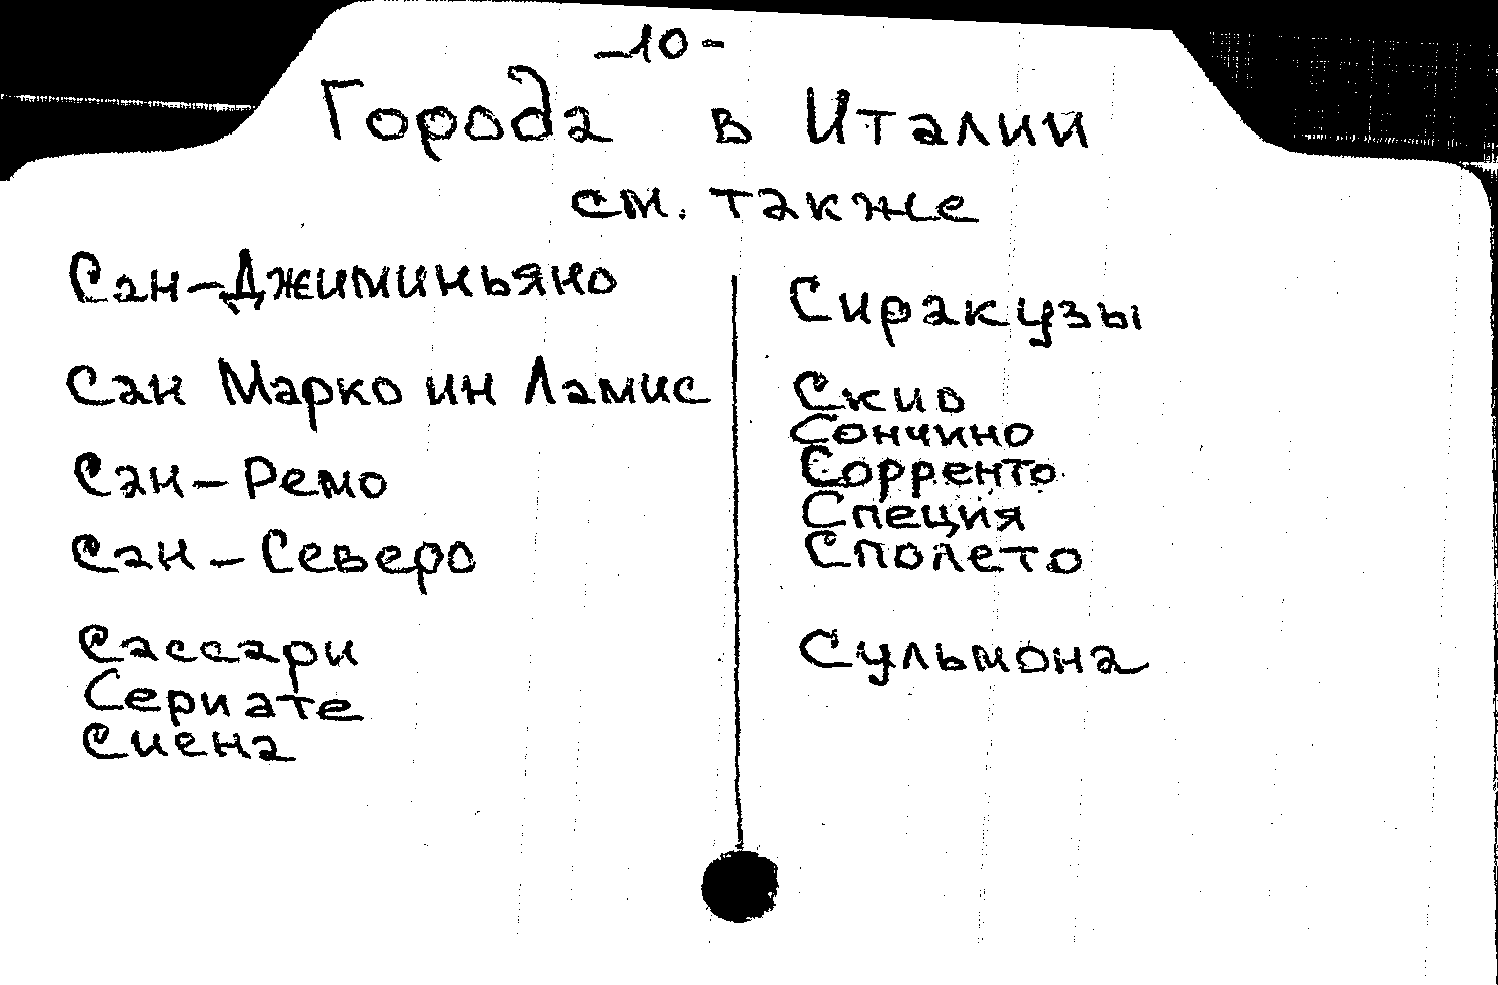 -10-
Города в Италии
см. также
Сан-Джиминьяно
Сан Марко ин Ламис
Сан-Ремо
Сан-Северо
Сассари
Сериате
Сиена
Сиракузы
Скио
Сончино
Сорренто
Специя
Сполето
Сульмона